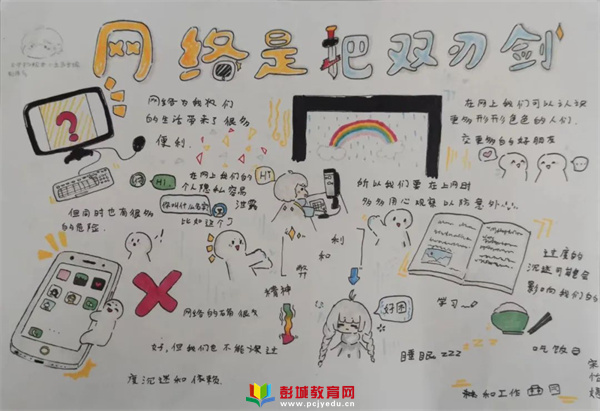 网络是把双刃剑
网络为我们
的生活带来了很多
便利.
在网上我们可以认识
更多形形色色的人们.
交更多的好朋友
?
Hi.
在网上我们的
个人隐私容易
泄露
你叫什么名字
比如这个
Hi
但同时也有很多
的危险.
所以我们要在上网时
多多用心观察以防意外
利
和
弊
过度的
沉迷可能会
影响我们的
精神
网络的确很
好,但我们也不能过
度沉迷和依赖
好困
学习
睡眠zzz
吃饭
和工作
彭城教育网
www.pcjyedu.cn